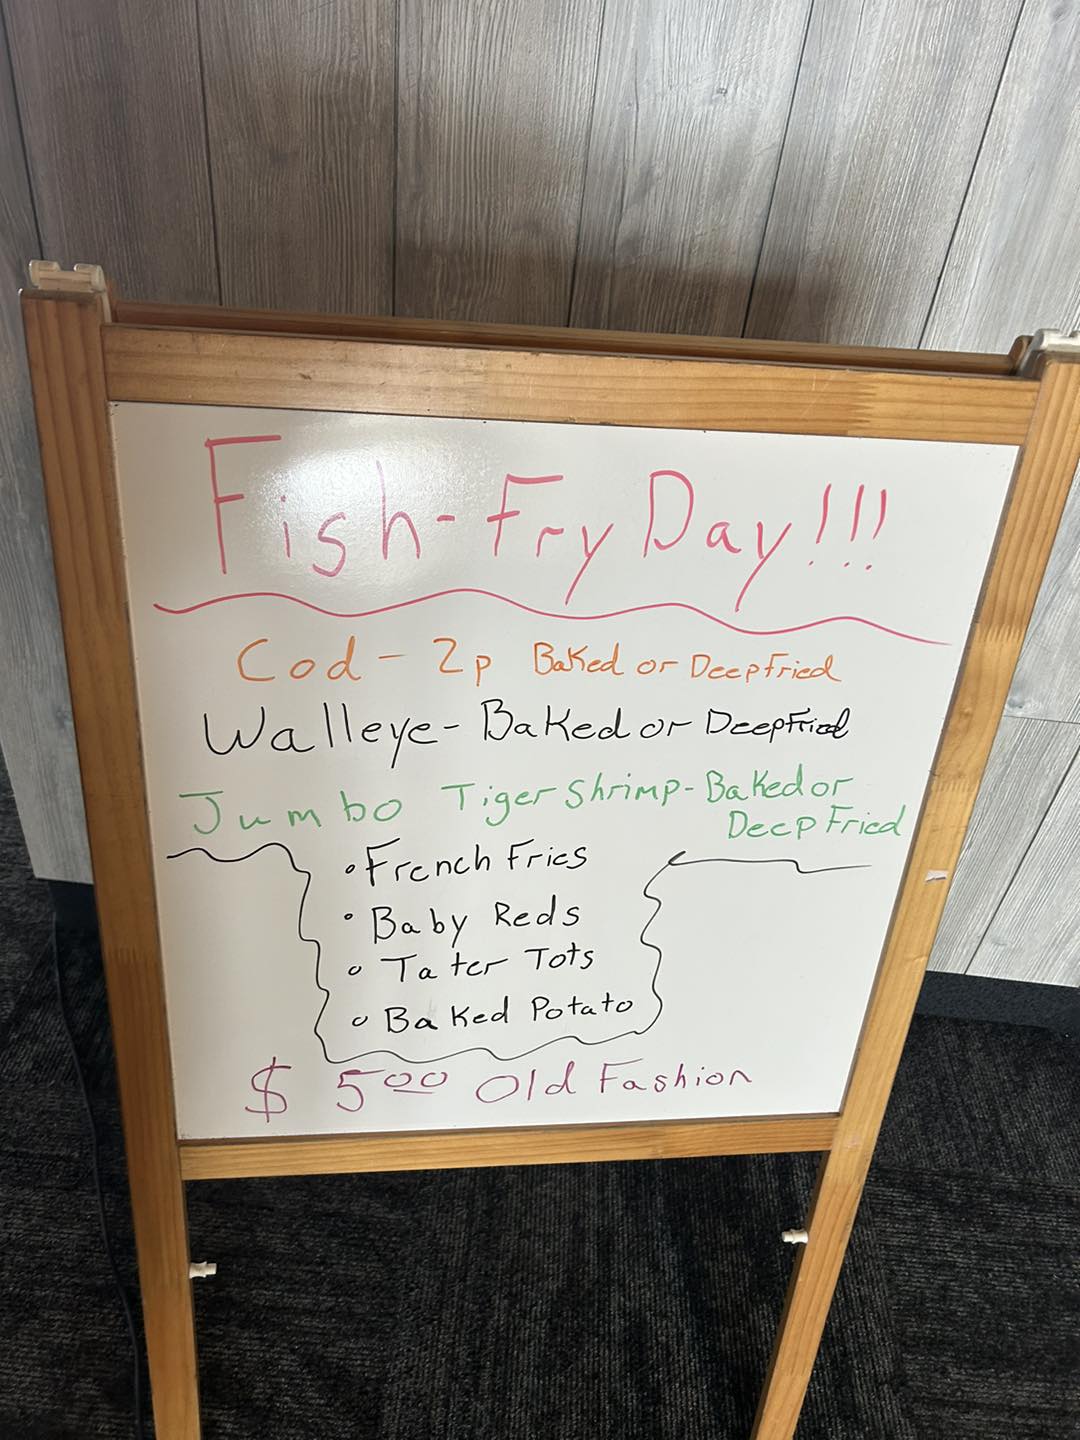 Fish-Fry Day!!!
Cod - 2p Baked or Deep Fried
Walleye - Baked or Deep Fried
Jumbo Tiger Shrimp - Baked or
Deep Fried
◦ French Fries
◦ Baby Reds
◦ Tater Tots
◦ Baked Potato
$5.00 Old Fashion